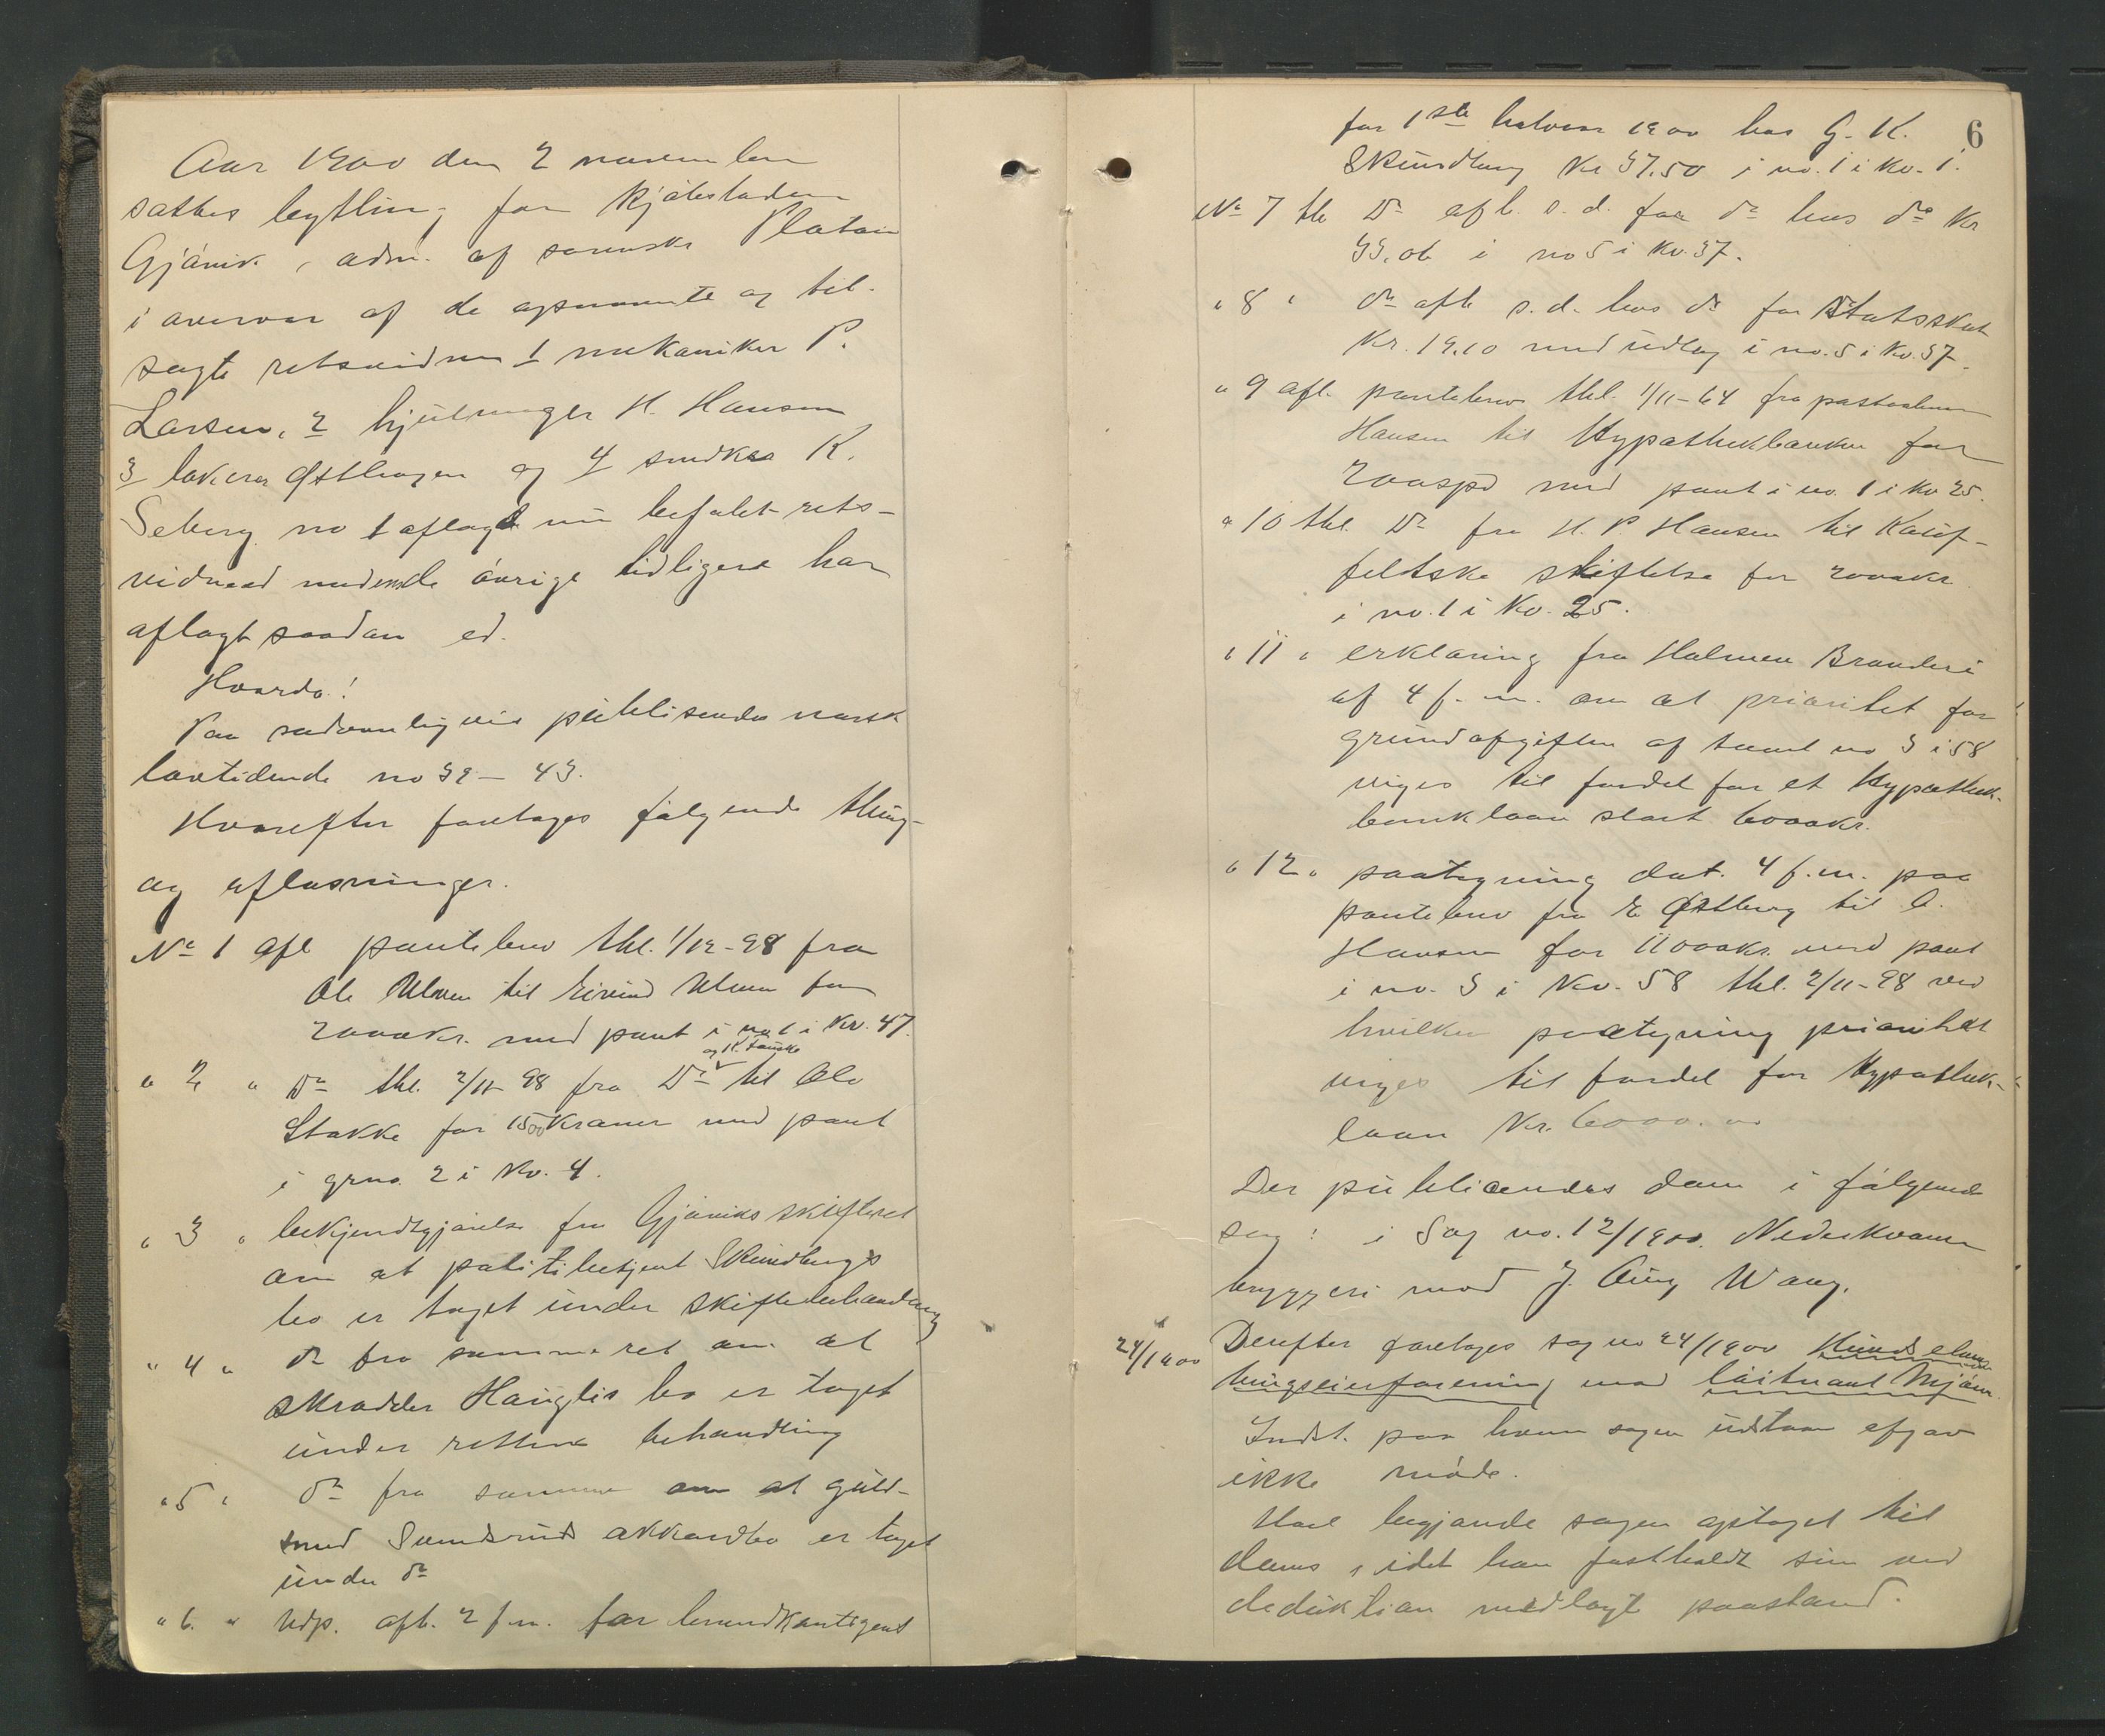 Aar 1900 den 2 november
sattes bything for kjøbstaden
Gjøvik, adm. af sorenskr Platou
i overvær af de opnævnte og til-
sagte retsvidner 1 mekaniker P.
Larsen, 2 hjulmager H. Hansen
3 lakerer Østhagen og 4 snedker K.
Seberg no 1 aflagde nu befalet rets-
vidneed medens de øvrige tidligere har
aflagt saadan ed.
Hvorda!
Paa sedvanlig vis publisendes norsk
lovtidende no 39 – 43.
Hvorefter foretages følgende thing-
og aflæsninger.
No 1 afl pantebrev thl. 1/12-98 fra
Ole Ulven til Eivind Ulven for
2000kr. med pant i no 1 i Kv. 47.
og K. Fauske
" 2 " Do thl. 2/11-98 fra Do til Ole
Stakke for 1500 kroner med pant
i grno. 2 i Kv. 4.
" 3 " bekjendtgjørelse fra Gjøviks skifteret
om at politibetjent Skundbergs
bo er taget under skiftebehandling
" 4 " do fra samme ret om at
skrædder Hauglis bo er taget
under rettens behandling
" 5 " do fra samme om at guld-
smed Sundsruds akkordbo er taget
under do
" 6. " Udp. afh. 2 f.m. for brandkontigent
6
for 1ste halvaar 1900 hos G. K.
Skundberg Kr 37.50 i no. 1 i Kv. 1.
No 7 thl Do afh. s.d. for do hos do Kr
33.06 i no 5 i Kv. 37.
" 8 " do afh s.d. hos do for Statsskat
Kr. 19.10 med udlæg i no. 5 i Kv. 37.
" 9 afl. pantebrev thl. 1/11-64 fra
Hansen til Hypothekbanken for
200spd med pant i no. 1 i Kv 25.
" 10 thl. Do fra H. P. Hansen til Kauf-
feldtske stiftelse for 2000kr
i no. 1 i Kv. 25.
" 11 " erklæring fra Holmen Brænderi
af 4 f.m. om at prioritet for
grundafgiften af tomt no 3 i 58
viges til fordel for et Hypothek-
banklaan stort 6000kr.
" 12 " paategning dat. 4 f.m. paa
pantebrev fra E Østberg til O.
Hansen for 11000kr. med pant
i no. 3 i Kv. 58 thl. 2/11-98 ved
hvilken paategning prioritet
viges til fordel for Hypothek-
laan Kr. 6000.00
Der publicendes dom i følgende
sag: i Sag no. 12/1900. Nederkværn
bryggeri mod J. Aug Wang.
24/1900 Derefter foretages sag no 24/1900
mod løitnant
Indst. paa hvem sagen udstaar afgav
ikke møde.
Hoel begjærede sagen optaget til
doms, idet han fastholdt sin ved
deduktion nedlagte paastand.